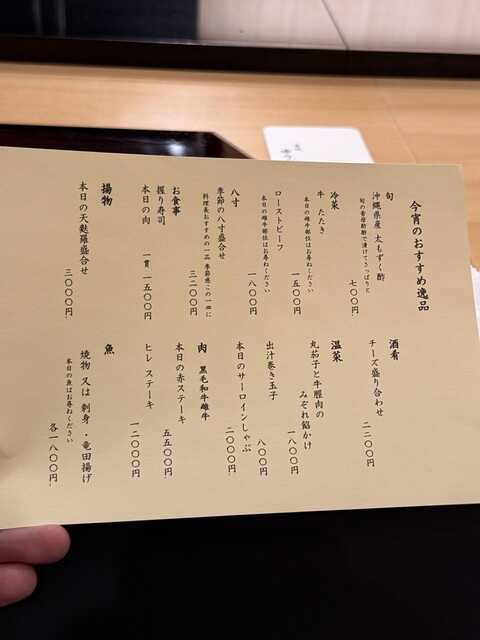 今宵のおすすめ逸品
旬
沖縄県産 太もずく酢
旬の香母酢酢で漬けてさっぱりと
七〇〇円
冷菜
牛 たたき
本日の雌牛部位はお尋ねください
一五〇〇円
ローストビーフ
本日の雌牛部位はお尋ねください
一八〇〇円
八寸
季節の八寸盛合せ
料理長おすすめの一品 季節感この一皿に
三二〇〇円
お食事
握り寿司
本日の肉
一貫 一五〇〇円
揚物
本日の天麩羅盛合せ
三〇〇〇円
酒肴
チーズ盛り合わせ
二二〇〇円
温菜
丸茄子と牛脛肉の
みぞれ餡かけ
一八〇〇円
出汁巻き玉子
八〇〇円
本日のサーロインしゃぶ
二〇〇〇円
肉 黒毛和牛雌牛
本日の赤ステーキ
五五〇〇円
ヒレ ステーキ
一二〇〇〇円
魚
焼物 又は 刺身 ・竜田揚げ
本日の魚はお尋ねください
各一八〇〇円